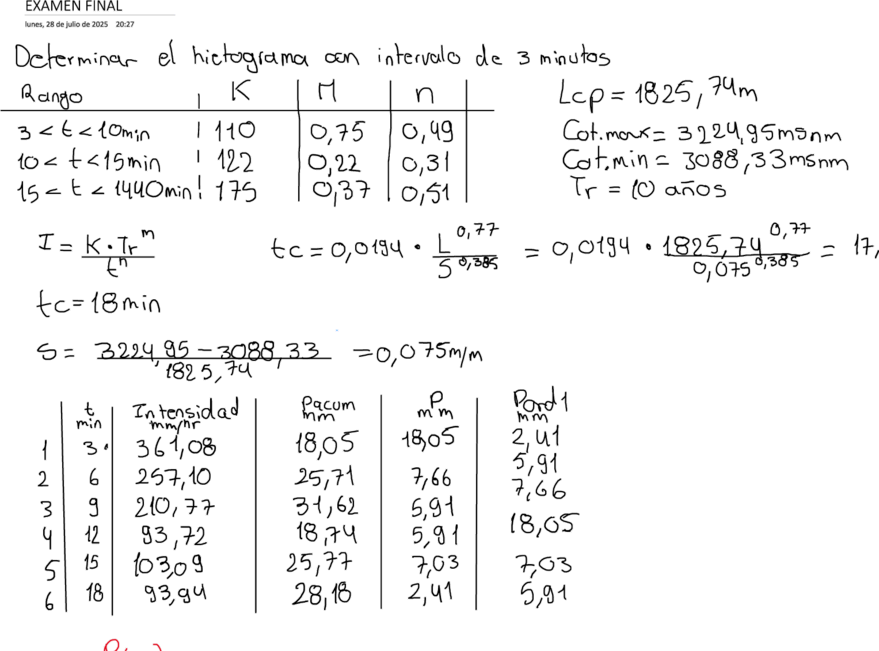 EXAMEN FINAL
lunes, 28 de julio de 2025 20:27
Determinar el hietograma con intervalo de 3 minutos
Rango K M n
3 < t < 10min 110 0,75 0,49
10 < t < 15min 122 0,22 0,31
15 < t < 1440min 175 0,37 0,51
Lcp = 1825,74m
Cot.max = 3224,95msnm
Cot.min = 3088,33msnm
Tr = 10 años
I = K · Tr^m / t^n
tc = 0,0194 · L^0,77 / S^0,385 = 0,0194 · 1825,74^0,77 / 0,075^0,385 = 17,
tc = 18min
S = 3224,95 - 3088,33 / 1825,74 = 0,075m/m
t min Intensidad mm/hr Pacum mm P mm Pord1 mm
1 3 361,08 18,05 18,05 2,41
2 6 257,10 25,71 7,66 5,91
3 9 210,77 31,62 5,91 7,66
4 12 93,72 18,74 5,91 18,05
5 15 103,09 25,77 7,03 7,03
6 18 93,94 28,18 2,41 5,91